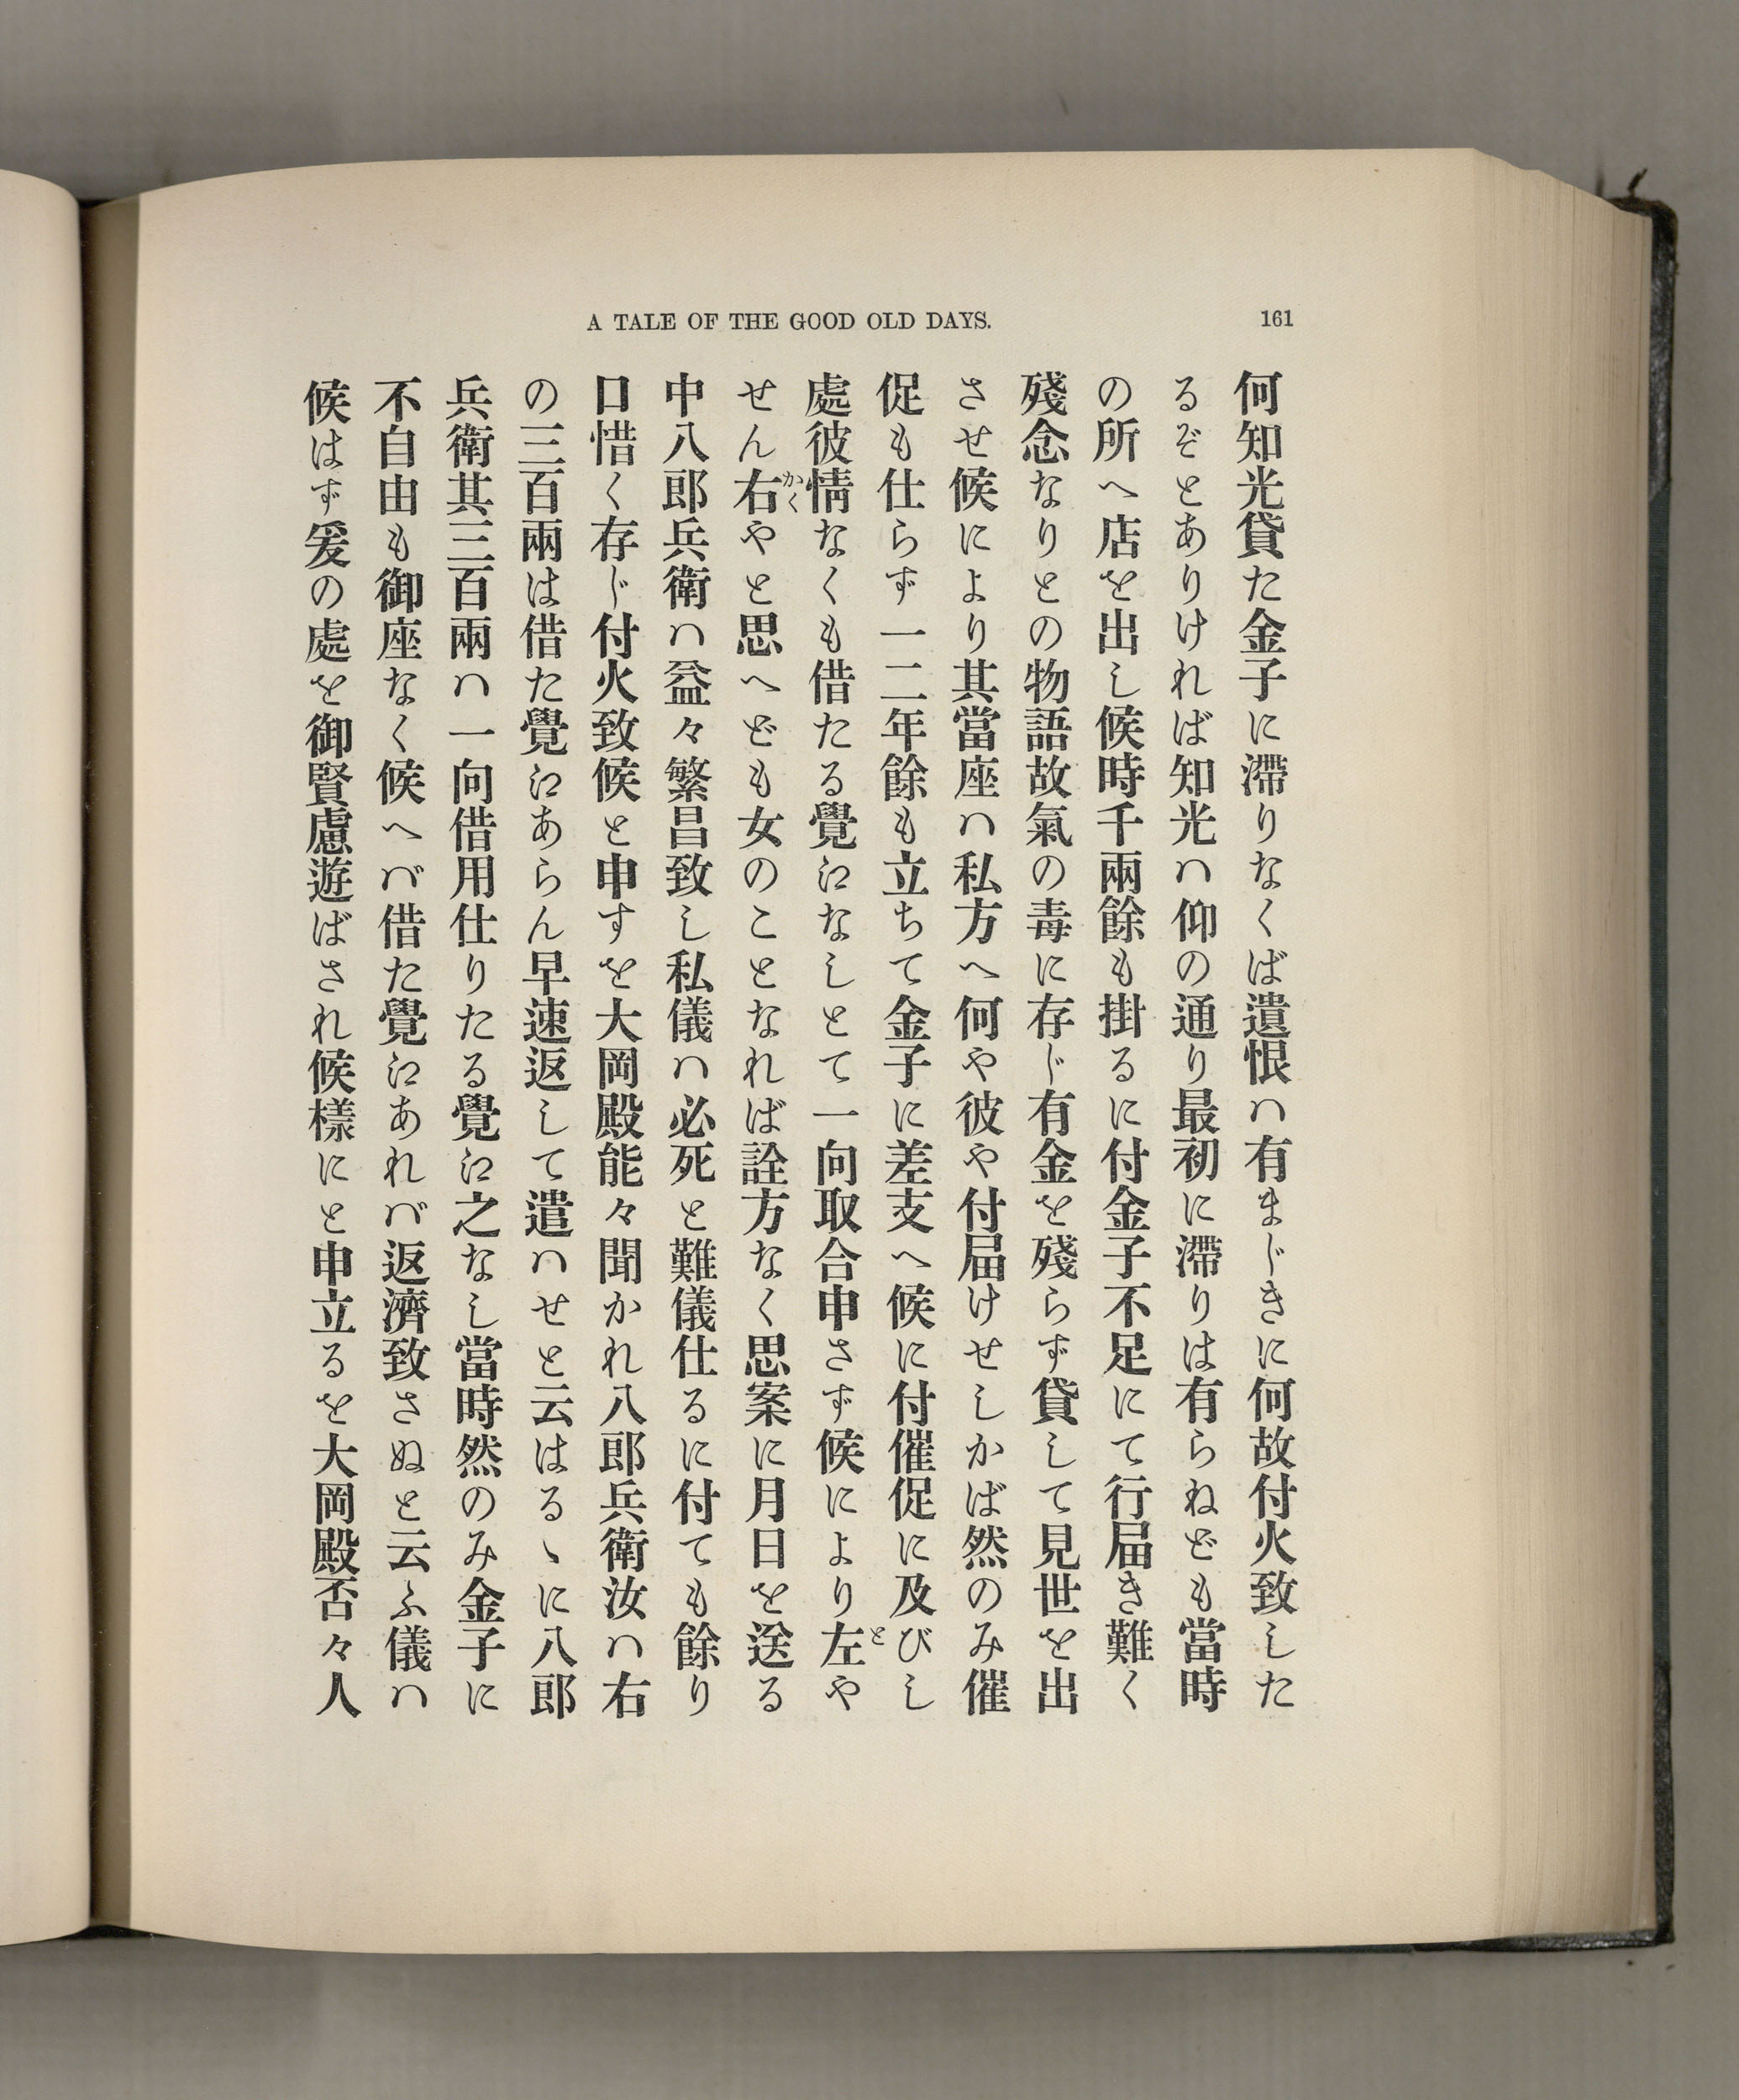 A TALE OF THE GOOD OLD DAYS. 161
何知光貸た金子に滯りなくば遺恨ハ有まじきに何故付火致した
るぞとありければ知光ハ仰の通り最初に滯りは有らねども當時
の所へ店を出し候時千兩餘も掛るに付金子不足にて行届き難く
殘念なりとの物語故氣の毒に存じ有金を殘らず貸して見世を出
させ候により其當座ハ私方へ何や彼や付届けせしかば然のみ催
促も仕らず一二年餘も立ちて金子に差支へ候に付催促に及びし
處彼情なくも借たる覺江なしとて一向取合申さず候により左や
せん右やと思へども女のことなれば詮方なく思案に月日を送る
中八郎兵衛ハ益々繁昌致し私儀ハ必死と難儀仕るに付ても餘り
口惜く存じ付火致候と申すを大岡殿能々聞かれ八郎兵衛汝ハ右
の三百兩は借た覺江あらん早速返して遣ハせと云はるゝに八郎
兵衛其三百兩ハ一向借用仕りたる覺江之なし當時然のみ金子に
不自由も御座なく候へバ借た覺江あれバ返濟致さぬと云ふ儀ハ
候はず爰の處を御賢慮遊ばされ候樣にと申立るを大岡殿否々人
と
かく